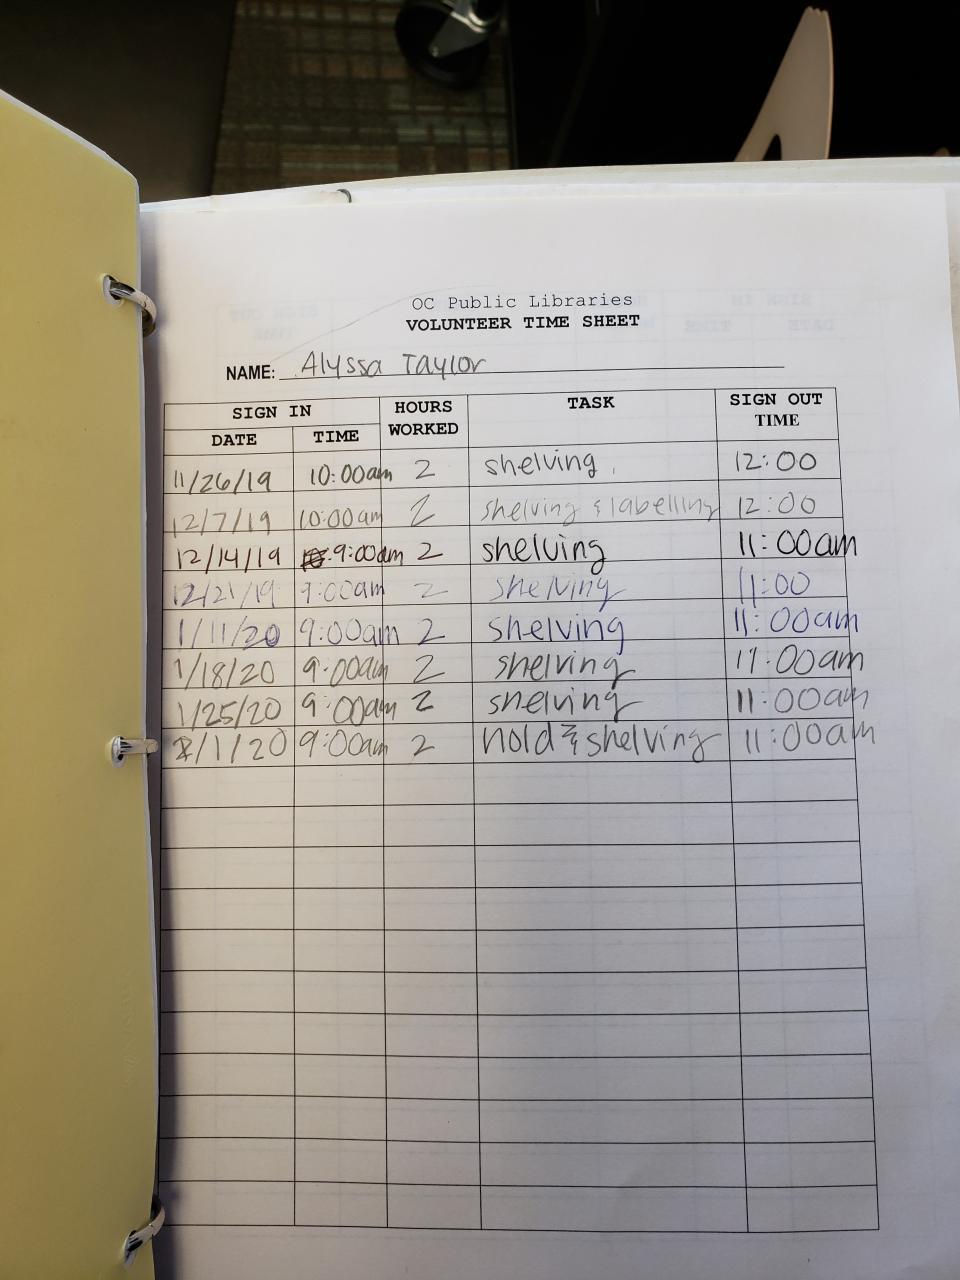 OC Public Libraries
VOLUNTEER TIME SHEET
NAME: Alyssa Taylor
SIGN IN HOURS WORKED TASK SIGN OUT TIME
DATE TIME
11/26/19 10:00am 2 shelving 12:00
12/7/19 10:00am 2 shelving & labelling 12:00
12/14/19 9:00am 2 shelving 11:00am
12/21/19 9:00am 2 shelving 11:00
1/11/20 9:00am 2 shelving 11:00am
1/18/20 9:00am 2 shelving 11:00am
1/25/20 9:00am 2 shelving 11:00am
2/1/20 9:00am 2 hold & shelving 11:00am